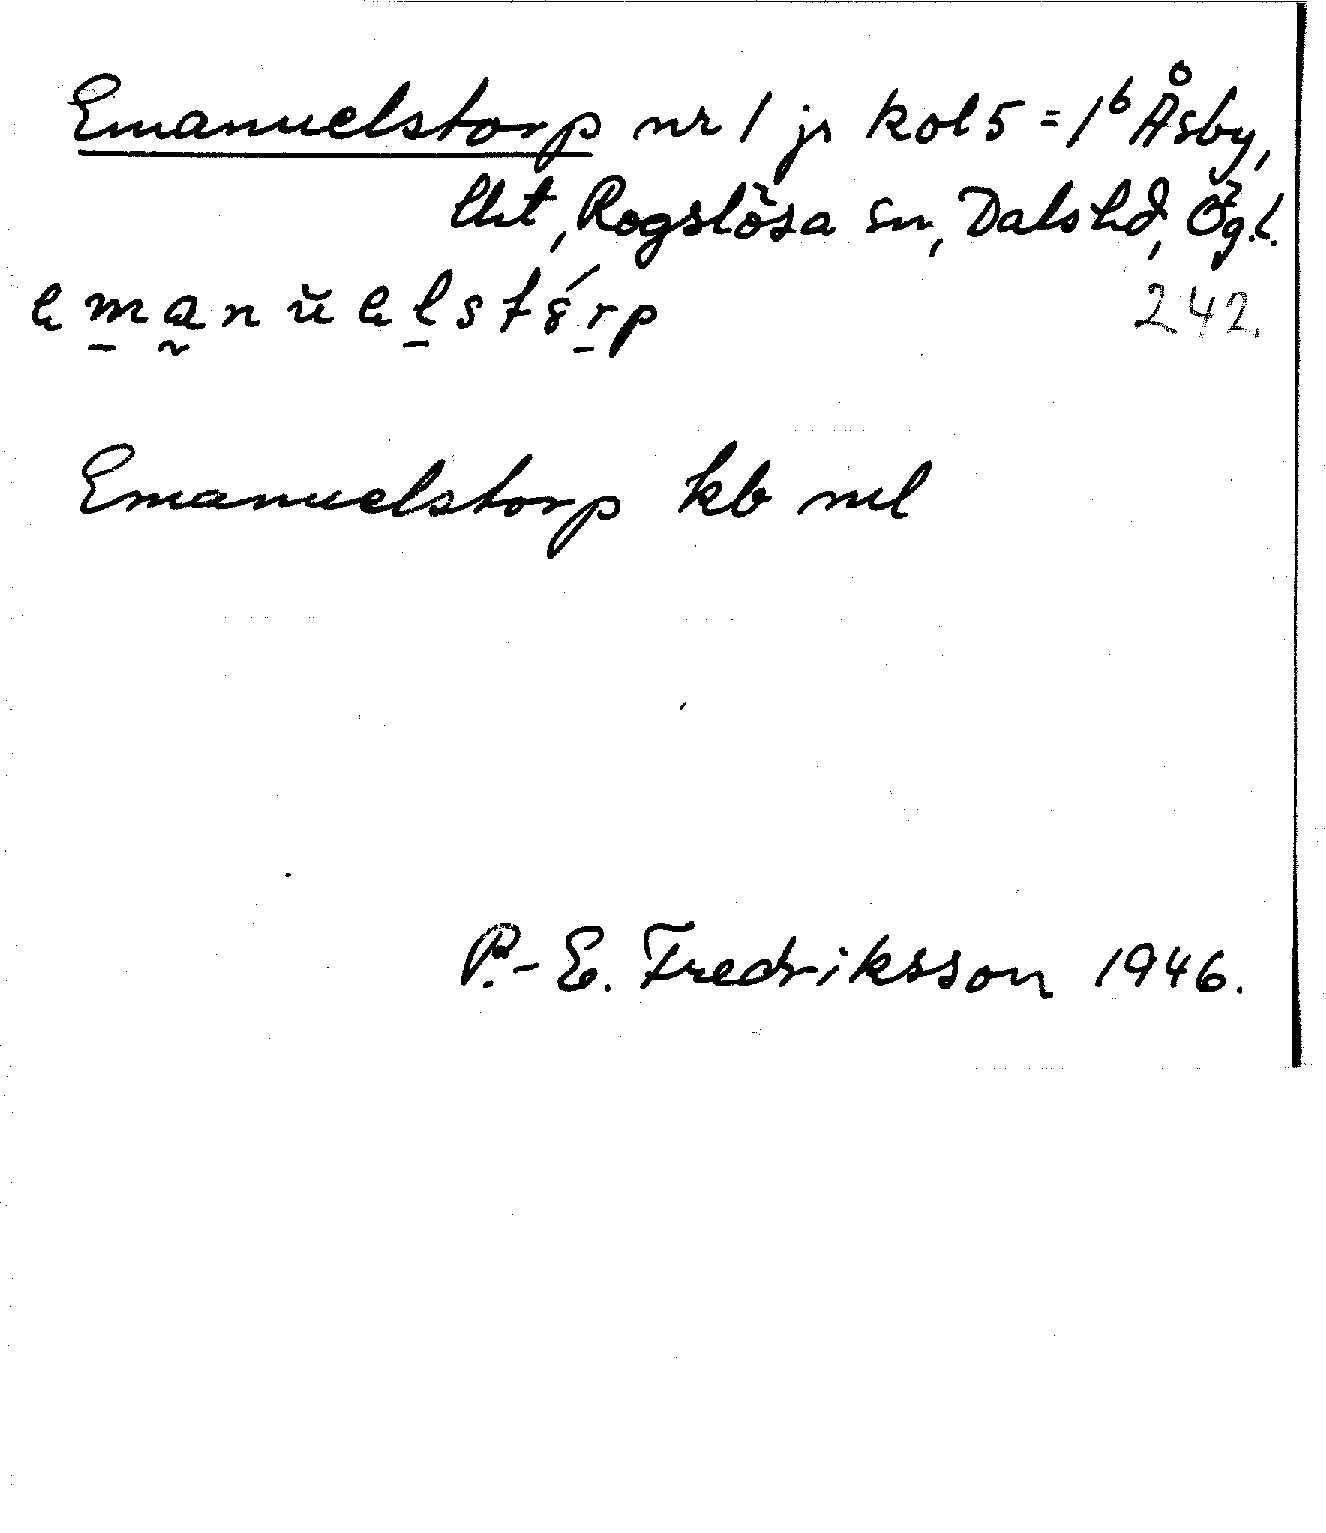 Emanuelstorp nr 1 jr kol 5 = 1⁶ Åsby,
lht, Rogslösa sn, Dals hd, Ögl.
242.
Emanuelstorp kb ml
P.-E. Fredriksson 1946.